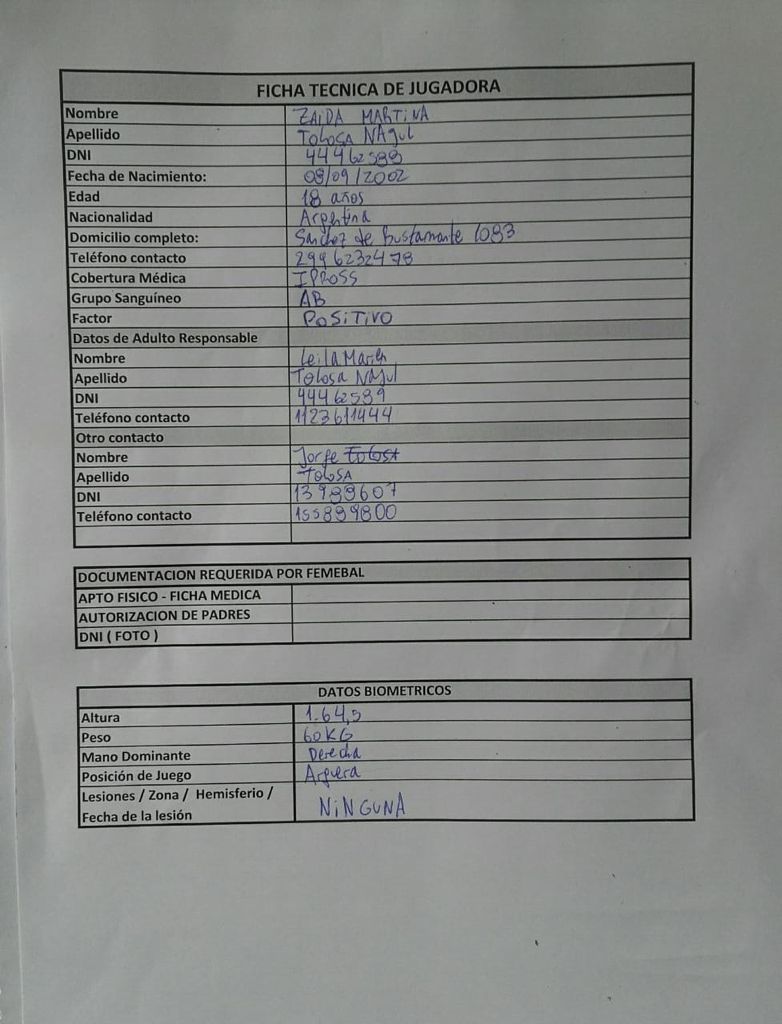 FICHA TECNICA DE JUGADORA
Nombre ZAIDA MARTINA
Apellido TOLOSA NAJUL
DNI 44462588
Fecha de Nacimiento: 09/09/2002
Edad 18 años
Nacionalidad Argentina
Domicilio completo: Sanchez de Bustamante 1083
Teléfono contacto 2996232478
Cobertura Médica IPROSS
Grupo Sanguíneo AB
Factor POSITIVO
Datos de Adulto Responsable
Nombre Leila
Apellido Tolosa NAJul
DNI 44462589
Teléfono contacto 1123611444
Otro contacto
Nombre Jorge Tolosa
Apellido TOLOSA
DNI 13989607
Teléfono contacto 155899800
DOCUMENTACION REQUERIDA POR FEMEBAL
APTO FISICO - FICHA MEDICA
AUTORIZACION DE PADRES
DNI ( FOTO )
DATOS BIOMETRICOS
Altura 1.64,5
Peso 60KG
Mano Dominante Derecha
Posición de Juego Arquera
Lesiones / Zona / Hemisferio /
Fecha de la lesión NINGUNA